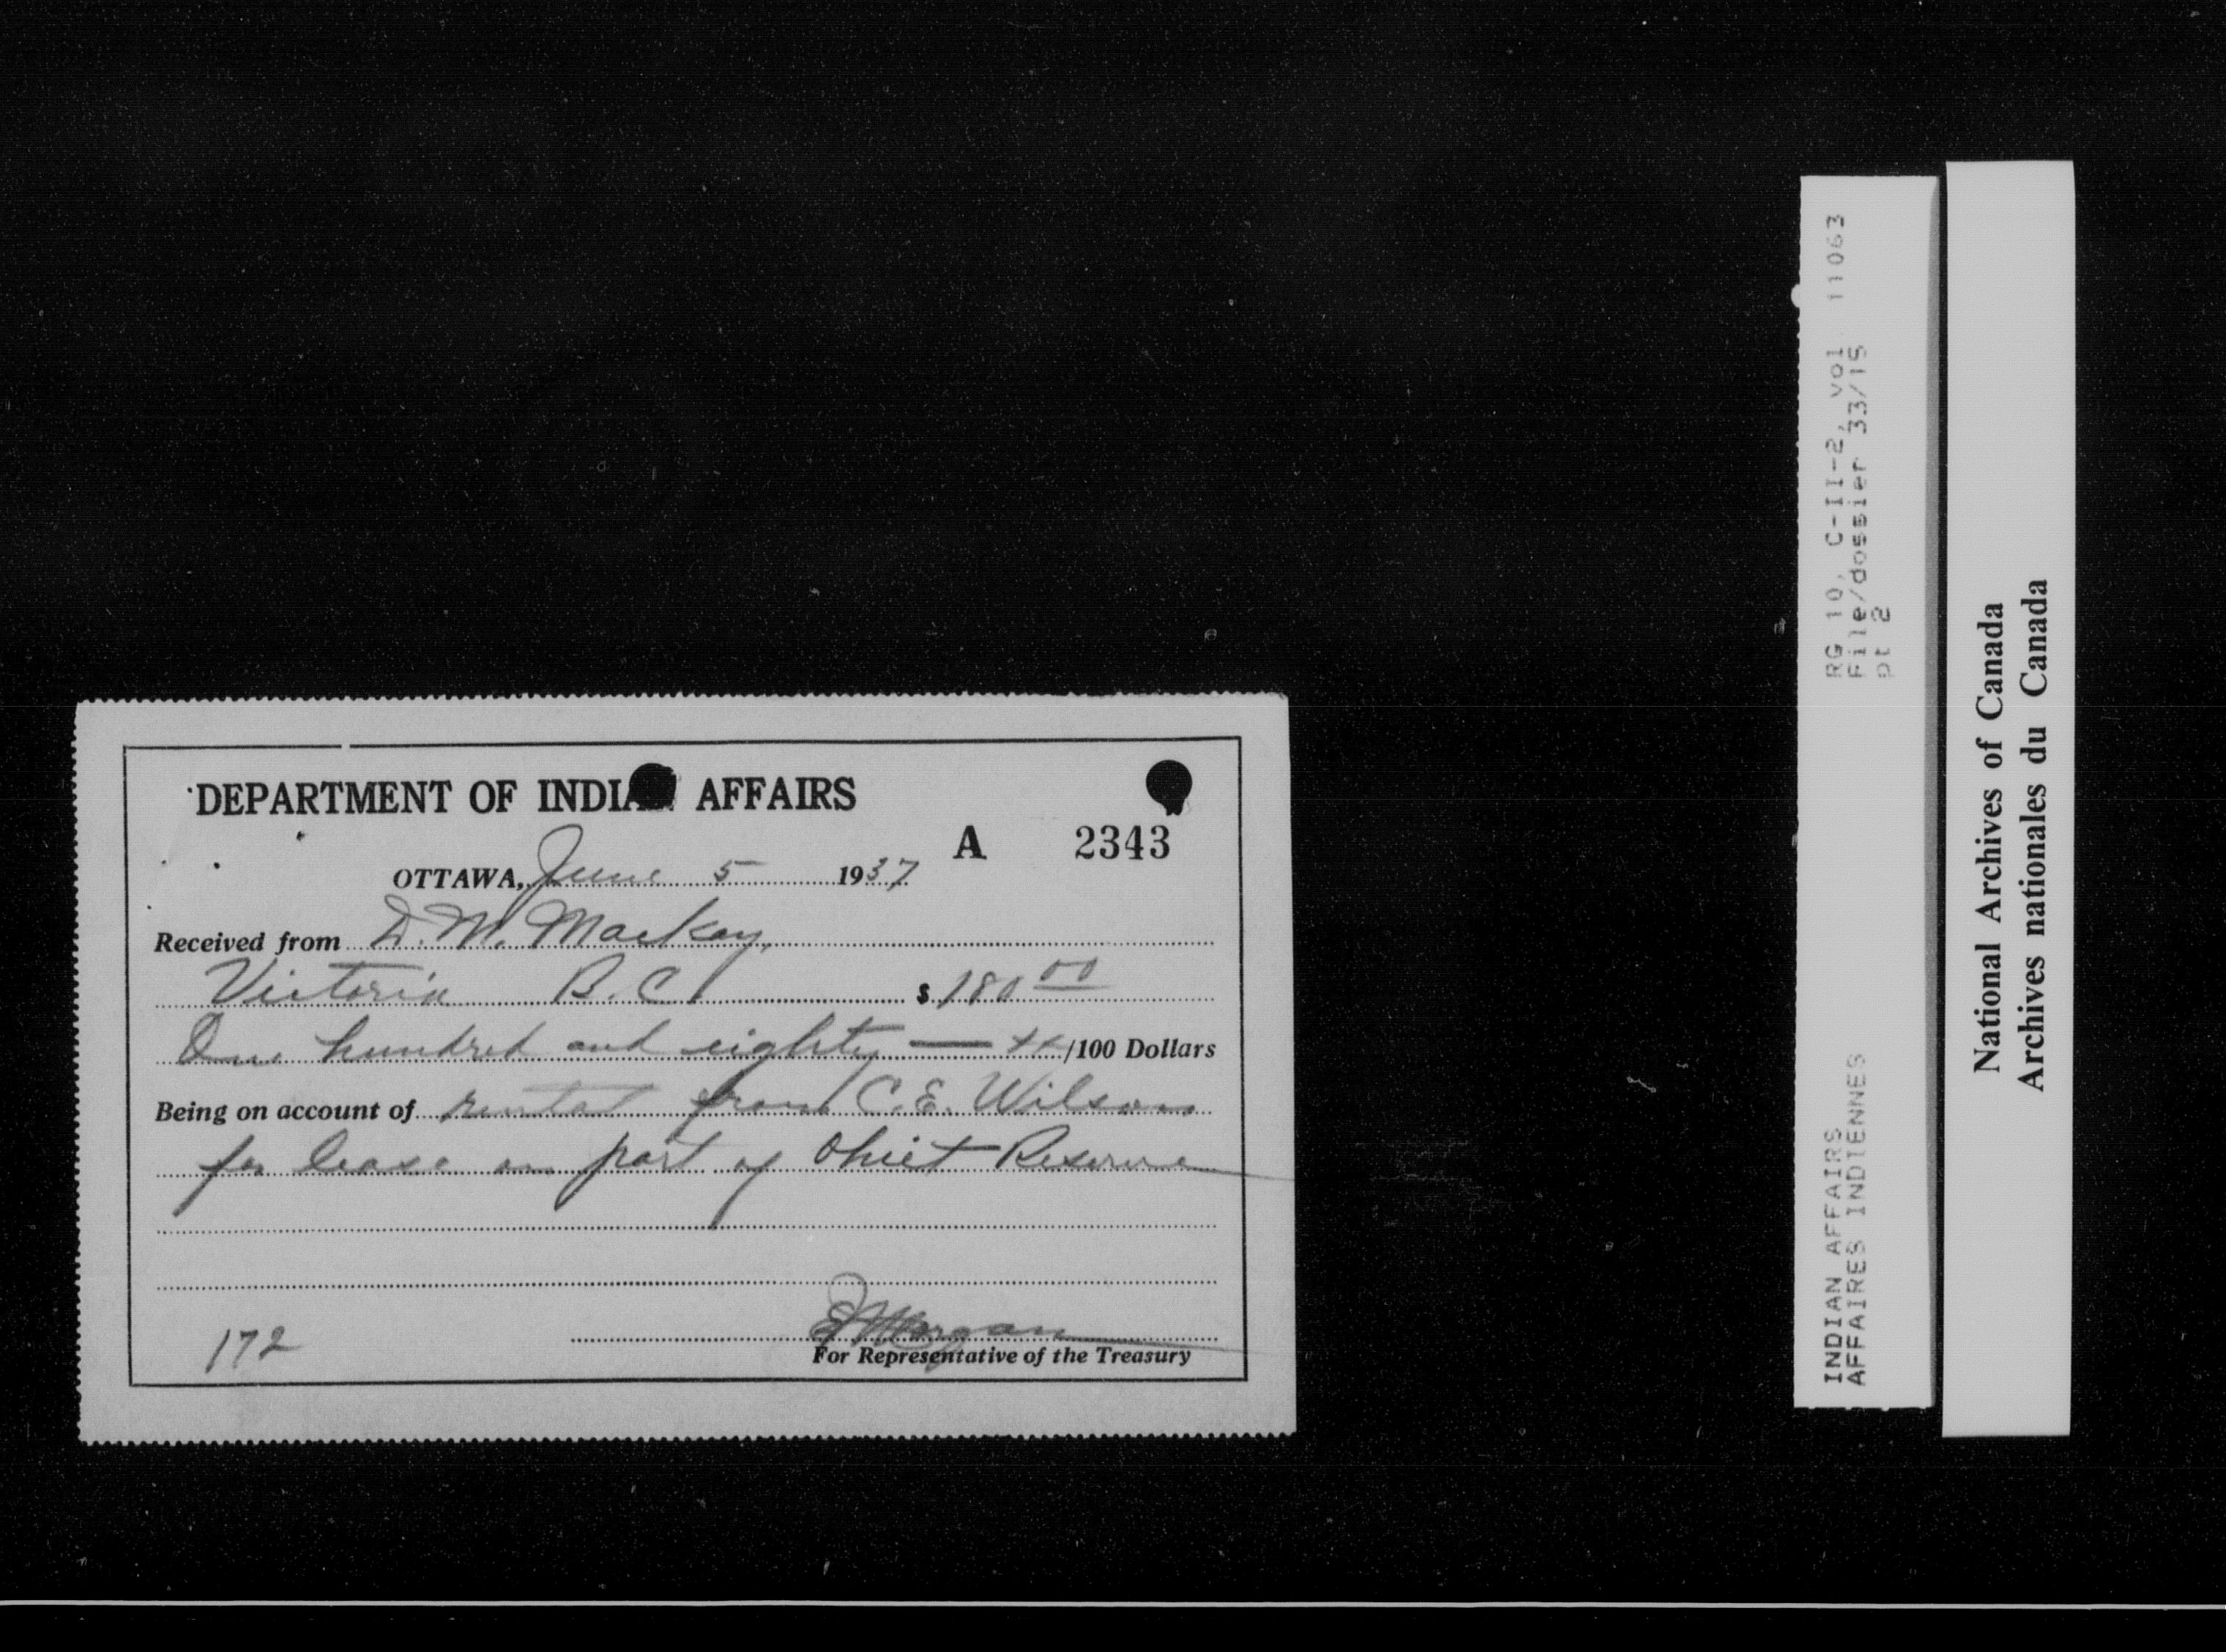 DEPARTMENT OF INDIAN AFFAIRS
A 2343
OTTAWA, June 5 1937
Received from D. M. MacKay,
Victoria B.C. $ 180 00
One hundred and eighty — xx/100 Dollars
Being on account of rental from C. E. Wilson
for lease on part of Ohiet Reserve
172
Morgan
For Representative of the Treasury
RG 10, C-II-2, vol 11063
File/dossier 33/15
pt 2
INDIAN AFFAIRS
AFFAIRES INDIENNES
National Archives of Canada
Archives nationales du Canada